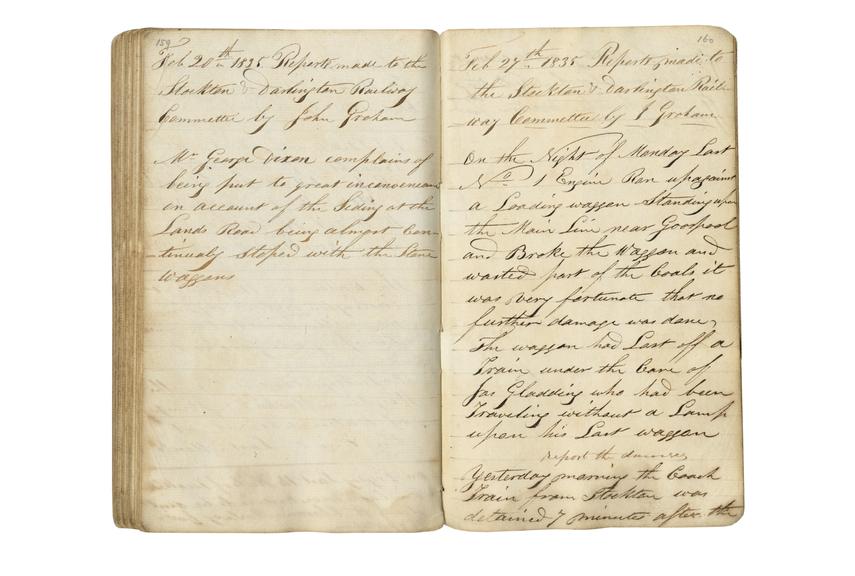 159
Feb 20th 1835 Reports made to the
Stockton & Darlington Railway
Committee by John Graham
Mr George Dixon complains of
being put to great inconvenience
on account of the Siding at the
Lands Road being almost Con-
tinualy Stoped with the Stone
waggons
160
Feb 27th 1835 Reports made to
the Stockton & Darlington Rail-
way Committee by J Graham
On the Night of Monday Last
No 1 Engine Ran up against
a Loading waggon Standing upon
the Main Line near Goospool
and Broke the Waggon and
wasted part of the Coals it
was very fortunate that no
further damage was done,
The waggon had Last off a
Train under the Care of
Jas Gladding who had been
Traveling without a Lamp
upon his Last waggon
report the
Yesterday morning the Coach
Train from Stockton was
detained 7 minutes after the